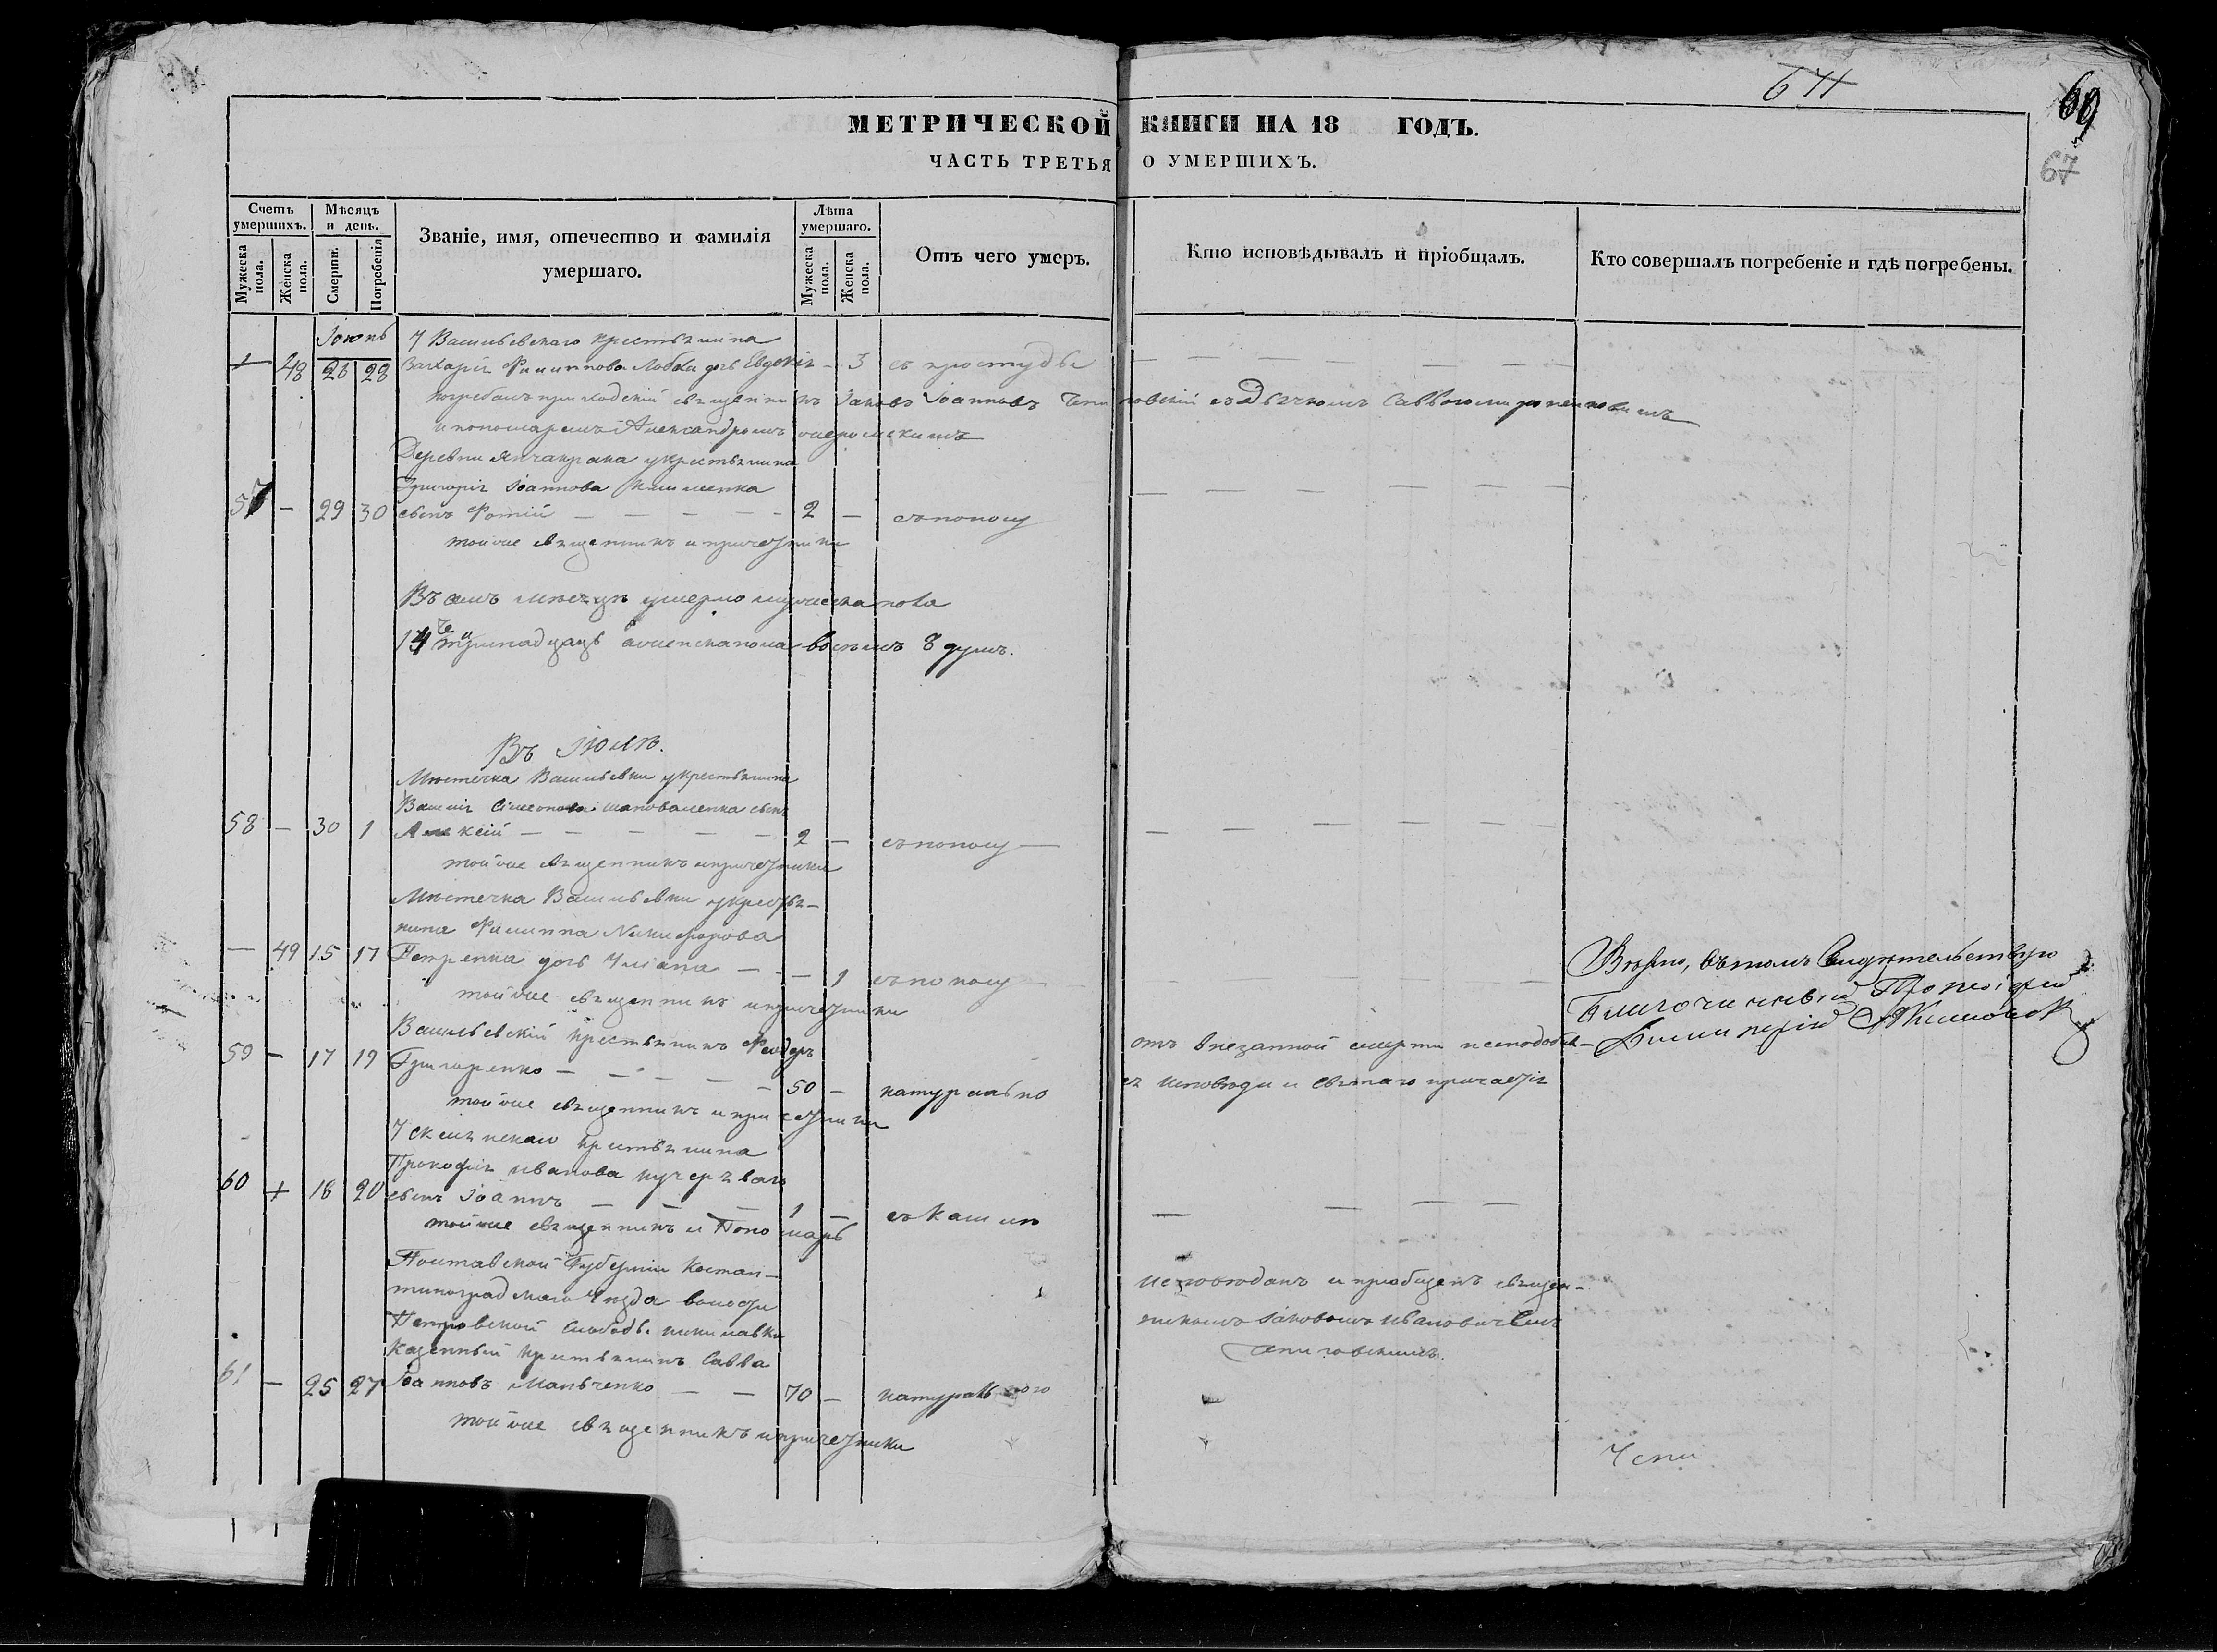 641
69
67
МЕТРИЧЕСКОЙ КНИГИ НА 18 ГОДЪ.
ЧАСТЬ ТРЕТЬЯ О УМЕРШИХЪ.
Счетъ умершихъ.
Мужеска пола.
Женска пола.
Мѣсяцъ и день.
Смерти.
Погребенія
Званіе, имя, отечество и фамилія умершаго.
Лѣта умершаго.
Мужеска пола.
Женска пола.
Отъ чего умеръ.
Кто исповѣдывалъ и пріобщалъ.
Кто совершалъ погребеніе и гдѣ погребены.
Іюнь
У Васильевскаго крестьянина
48 26 28 Захарія Филиппова дочь Евдокія — 3 съ простуды
погребалъ приходскій священникъ Іаковъ Іоанновъ
и пономаремъ Александромъ
Деревни Янчакрака у крестьянина
Григорія Іоаннова Клименка
57 — 29 30 сынъ Фотій — 2 — съ поносу
тойже священникъ и причетники
Въ семъ мѣсяцѣ умерло мужеска пола
14 а женска пола восемь 8 душъ.
Въ Іюлѣ.
Мѣстечка Васильевки у крестьянина
Василія Симеонова Шаповаленка сынъ
58 — 30 1 Алексій — 2 — съ поносу —
тойже священникъ и причетники
Мѣстечка Васильевки у крестья-
нина Филиппа Никифорова
— 49 15 17 Петренка дочь Уліана — — 1 съ поносу
тойже священникъ и причетники
Васильевскій крестьянинъ Феодоръ
59 — 17 19 Григоренко — 50 — натурально
отъ внезапной смерти несподобил-
ся исповѣди и святаго причастія
тойже священникъ и причетники
У крестьянина
Прокофія Иванова Кучеряваго
60 + 18 20 сынъ Іоаннъ — 1 — съ кашлю
тойже священникъ и Пономарь
Полтавской Губерніи Констан-
тиноградскаго Уѣзда волости
Петровской слободы
Казенный крестьянинъ Савва
61 — 25 27 Іоанновъ — — 70 — натурально
исповѣданъ и пріобщенъ священ-
никомъ Іаковомъ Ивановичемъ
тойже священникъ и причетники
Вѣрно, въ томъ свидѣтельствую
Благочинный Протоіерей